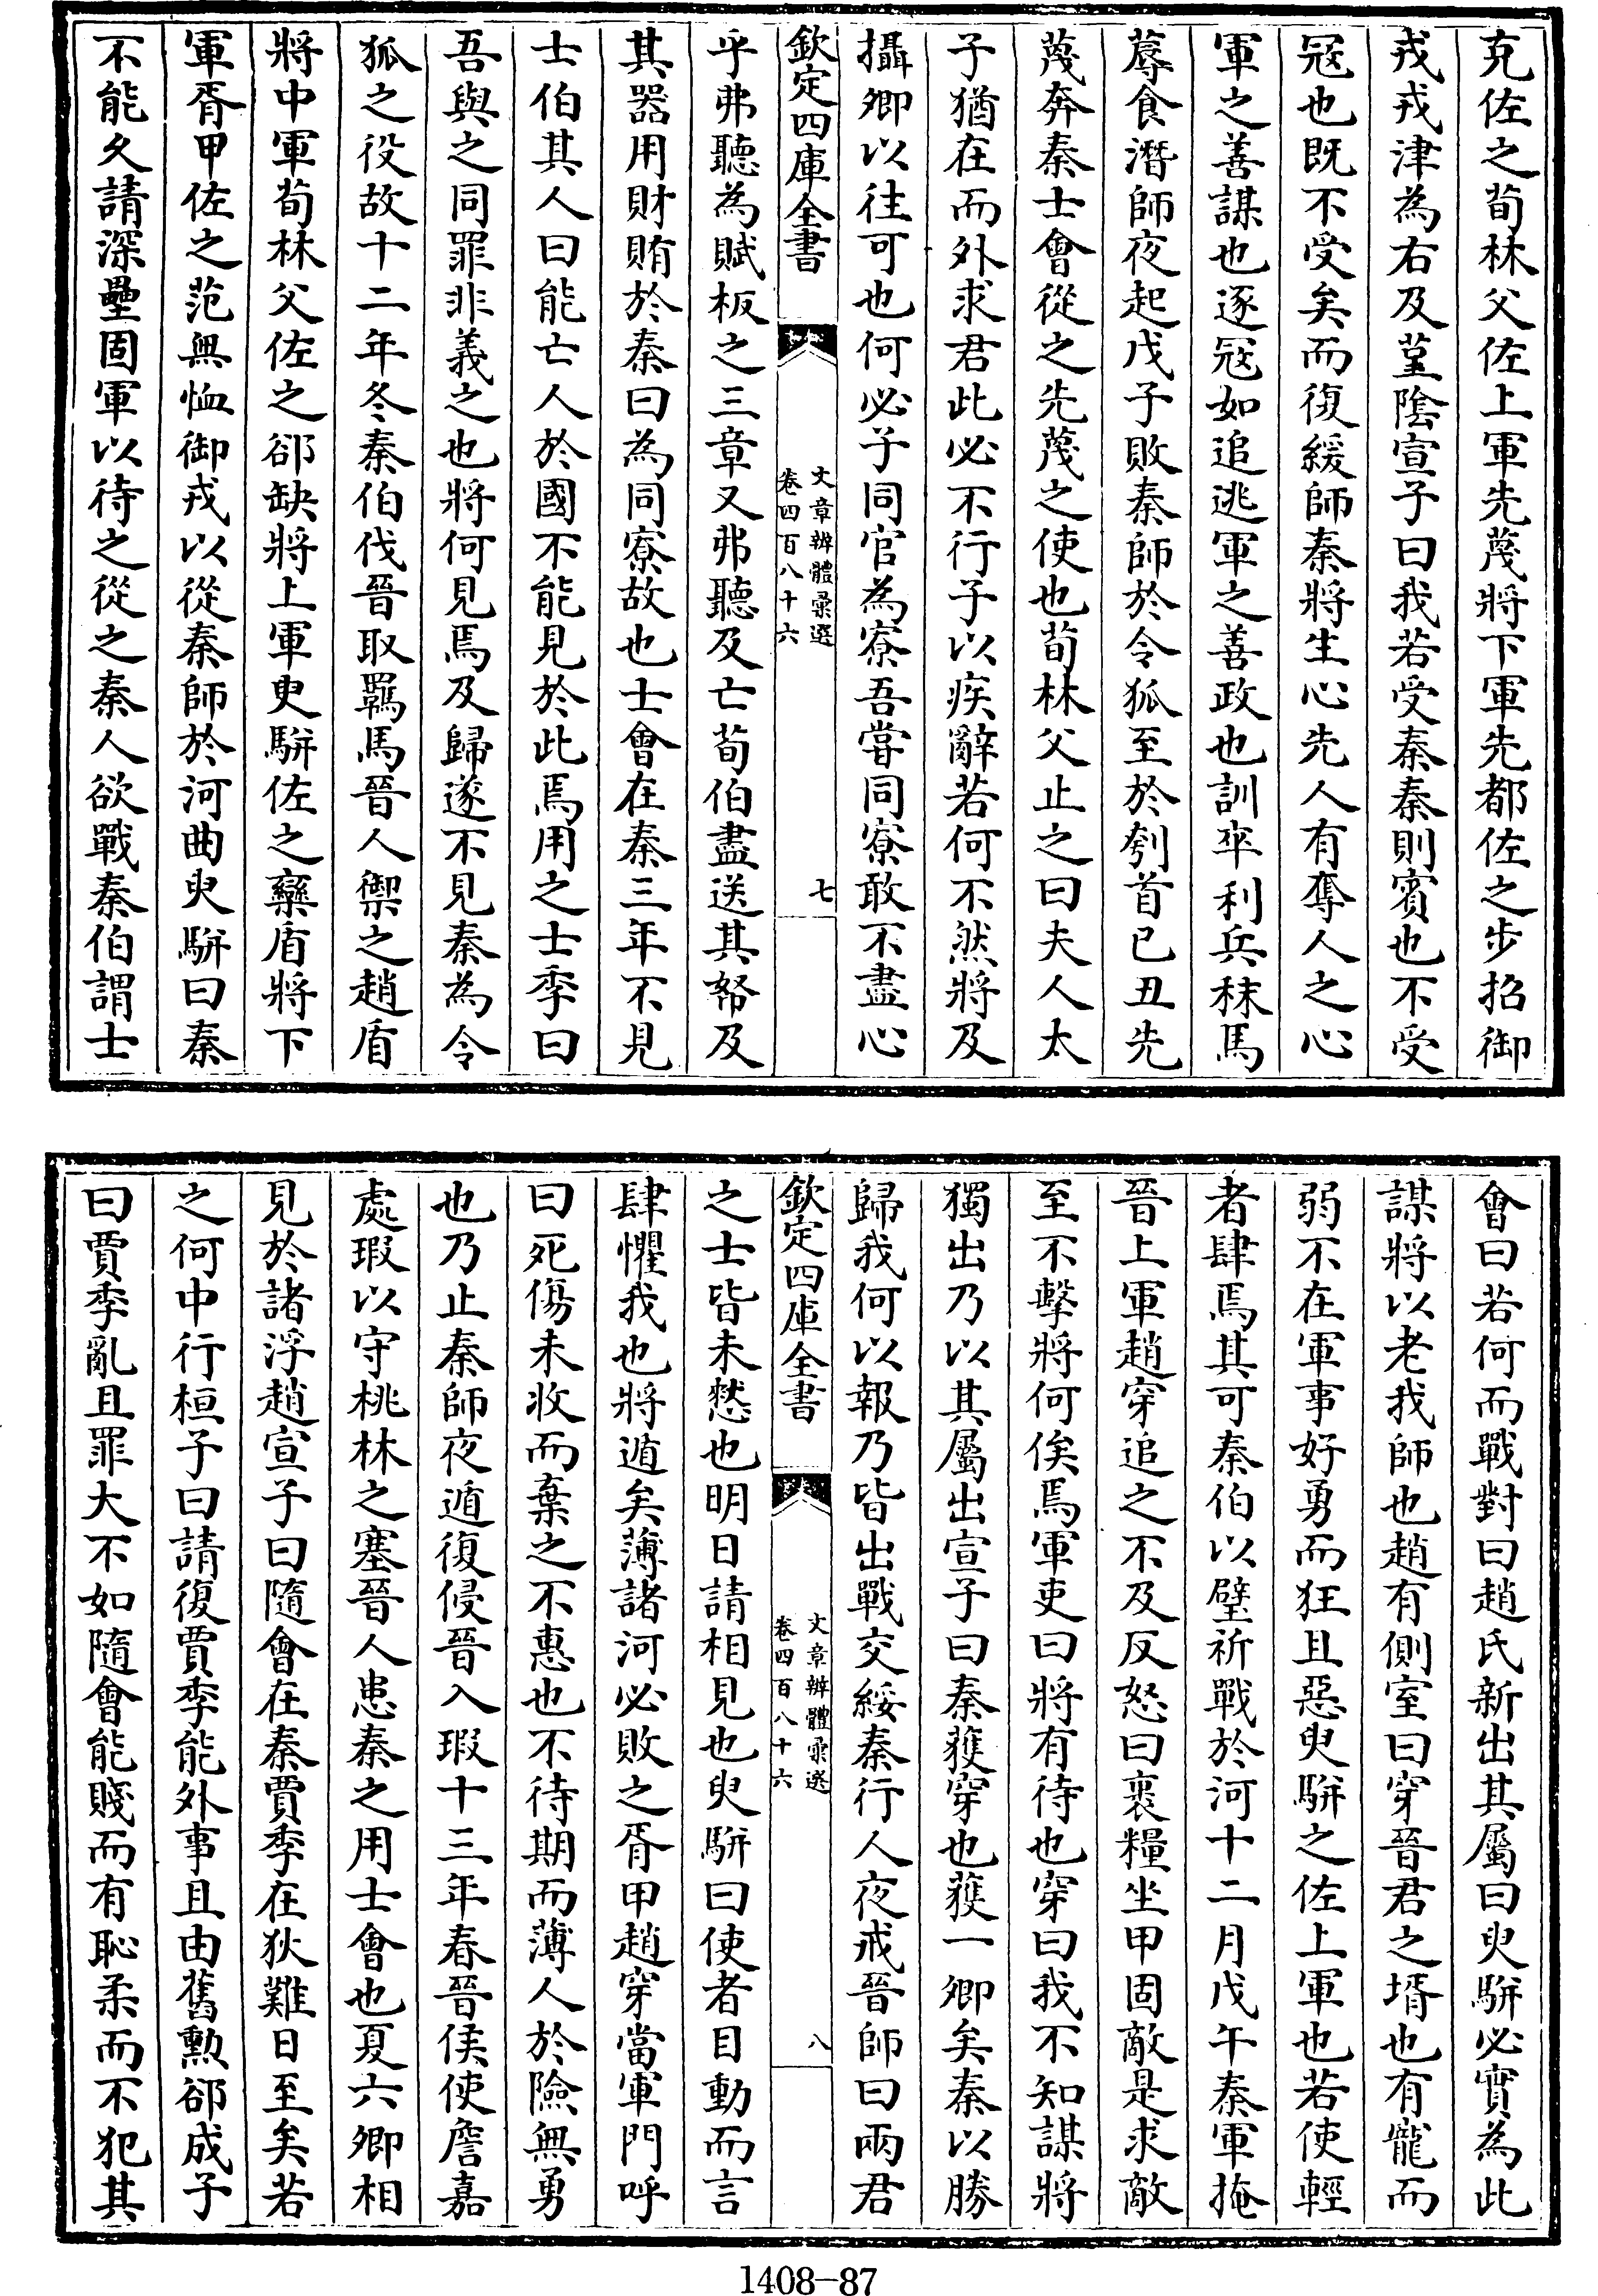 克佐之荀林父佐上軍先蔑將下軍先都佐之步招御
戎戎津為右及堇隂宣子曰我若受秦秦則賓也不受
宼也既不受矣而復緩師秦將生心先人有奪人之心
軍之善謀也逐宼如追逃軍之善政也訓卒利兵秣馬
蓐食潛師夜起戊子敗秦師於令狐至於刳首己丑先
蔑奔秦士會從之先蔑之使也荀林父止之曰夫人太
子猶在而外求君此必不行子以疾辭若何不然將及
攝卿以往可也何必子同官為寮吾嘗同寮敢不盡心
欽定四庫全書
文章辨體彚選
卷四百八十六
七
乎弗聽為賦板之三章又弗聽及亡荀伯盡送其帑及
其器用財賄於秦曰為同寮故也士會在秦三年不見
士伯其人曰能亡人於國不能見於此焉用之士季曰
吾與之同罪非義之也將何見焉及歸遂不見秦為令
狐之役故十二年冬秦伯伐晉取羈馬晉人禦之趙盾
將中軍荀林父佐之郤缺將上軍臾駢佐之欒盾將下
軍胥甲佐之范無恤御戎以從秦師於河曲臾駢曰秦
不能久請深壘固軍以待之從之秦人欲戰秦伯謂士
會曰若何而戰對曰趙氏新出其屬曰臾駢必實為此
謀將以老我師也趙有側室曰穿晉君之壻也有寵而
弱不在軍事好勇而狂且惡臾駢之佐上軍也若使輕
者肆焉其可秦伯以璧祈戰於河十二月戊午秦軍掩
晉上軍趙穿追之不及反怒曰裹糧坐甲固敵是求敵
至不擊將何俟焉軍吏曰將有待也穿曰我不知謀將
獨出乃以其屬出宣子曰秦獲穿也獲一卿矣秦以勝
歸我何以報乃皆出戰交綏秦行人夜戒晉師曰兩君
欽定四庫全書
文章辨體彚選
卷四百八十六
八
之士皆未憖也明日請相見也臾駢曰使者目動而言
肆懼我也將遁矣薄諸河必敗之胥甲趙穿當軍門呼
曰死傷未收而棄之不惠也不待期而薄人於險無勇
也乃止秦師夜遁復侵晉入瑕十三年春晉侯使詹嘉
處瑕以守桃林之塞晉人患秦之用士會也夏六卿相
見於諸浮趙宣子曰隨會在秦賈季在狄難日至矣若
之何中行桓子曰請復賈季能外事且由舊勲郤成子
曰賈季亂且罪大不如隨會能賤而有恥柔而不犯其
1408-87